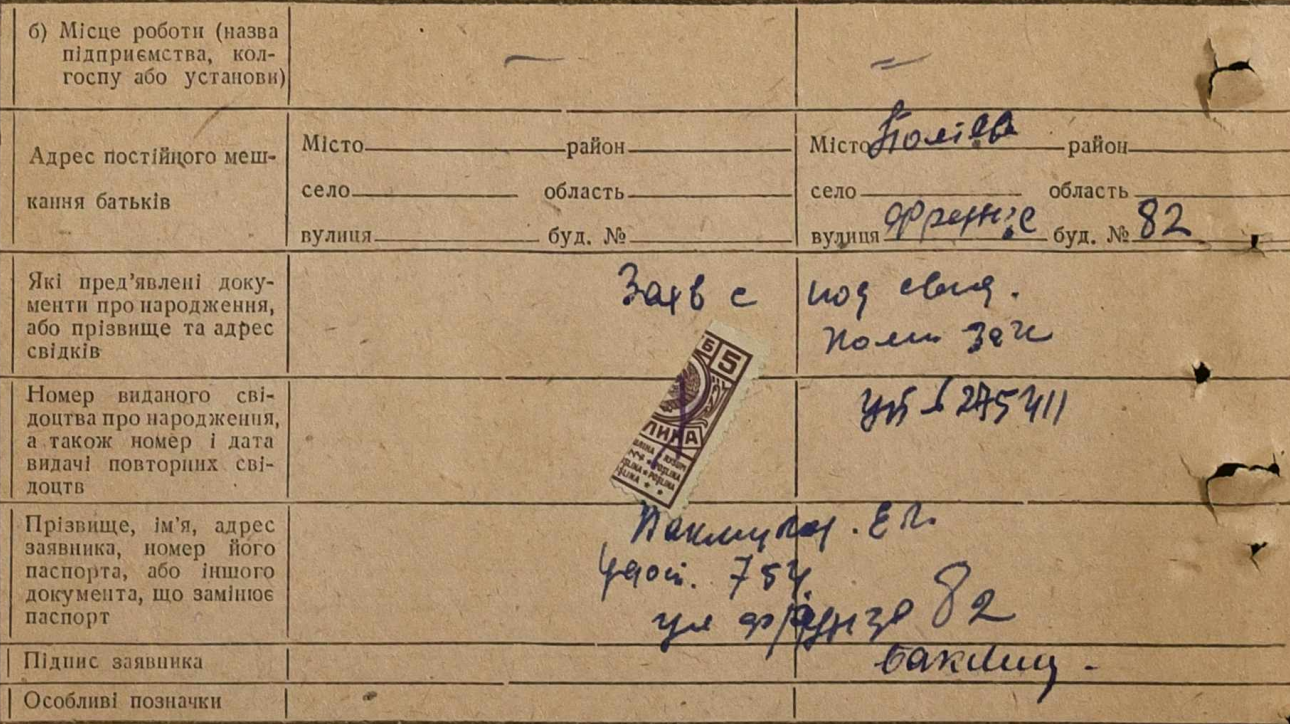 б) Місце роботи (назва
підприємства, кол-
госпу або установи)
Адрес постійного меш-
кання батьків
Місто район
село область
вулиця буд. №
Місто Полтава район
село область
вулиця Фрунзе буд. № 82
Які пред’явлені доку-
менти про народження,
або прізвище та адрес
свідків
Заяв с под свид.
Номер виданого сві-
доцтва про народження,
а також номер і дата
видачі повторних сві-
доцтв
№ 275411
Б 5
ЛИНА
POŞLINA
Прізвище, ім’я, адрес
заявника, номер його
паспорта, або іншого
документа, що замінює
паспорт
удост. 754
ул Фрунзе 82
Підпис заявника
Особливі позначки